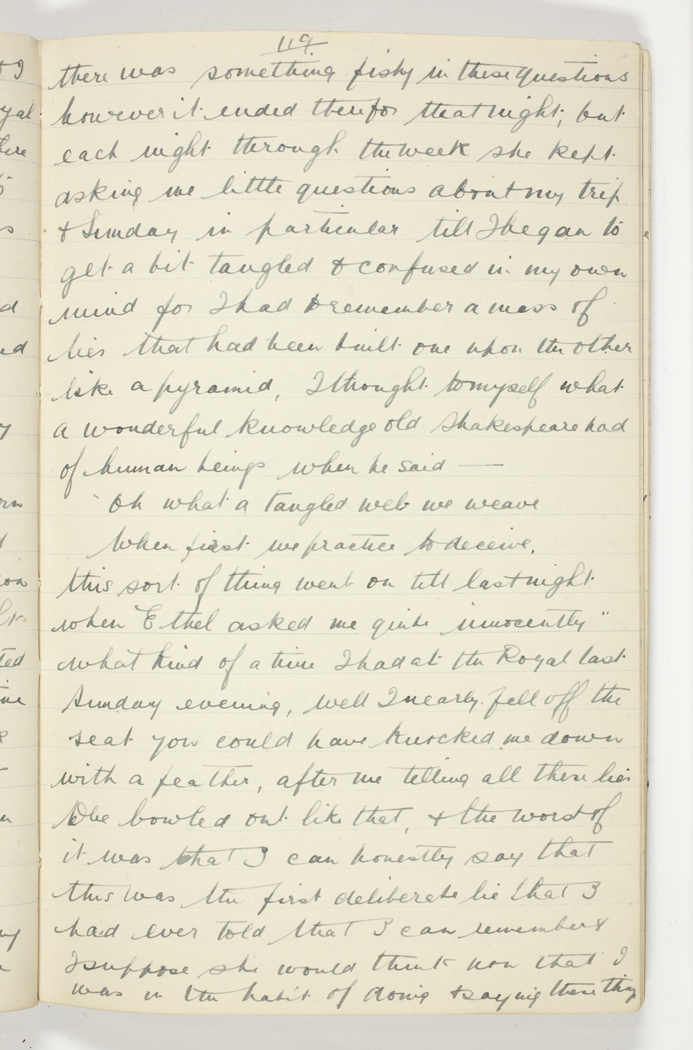 119
there was something fishy in these questions
however it ended there for that night, but
each night through the week she kept
asking me little questions about my trip
& Sunday in particular till I began to
get a bit tangled & confused in my own
mind for I had to remember a mass of
lies that had been built one upon the other
like a pyramid, I thought to myself what
a wonderful knowledge old Shakespeare had
of human beings when he said —
"Oh what a tangled web we weave
When first we practice to deceive,
this sort of thing went on till last night
when Ethel asked me quite innocently"
what kind of a time I had at the Royal last
Sunday evening, well I nearly fell off the
seat you could have knocked me down
with a feather, after me telling all these lies
to be bowled out like that, & the worst of
it was that I can honestly say that
this was the first deliberate lie that I
had ever told that I can remember &
I suppose she would think now that I
was in the habit of doing & saying these things